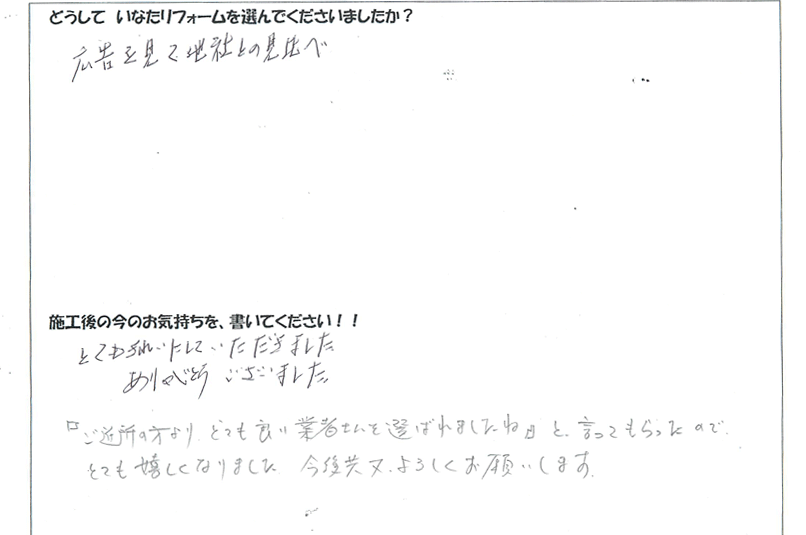 どうして いなたリフォームを選んでくださいましたか？
広告を見て他社との見比べ
施工後の今のお気持ちを、書いてください！！
とてもきれいにしていただきました
ありがとうございました。
『ご近所の方より、とても良い業者さんを選ばれましたね』と、言ってもらったので、
とても嬉しくなりました 今後共又、よろしくお願いします。